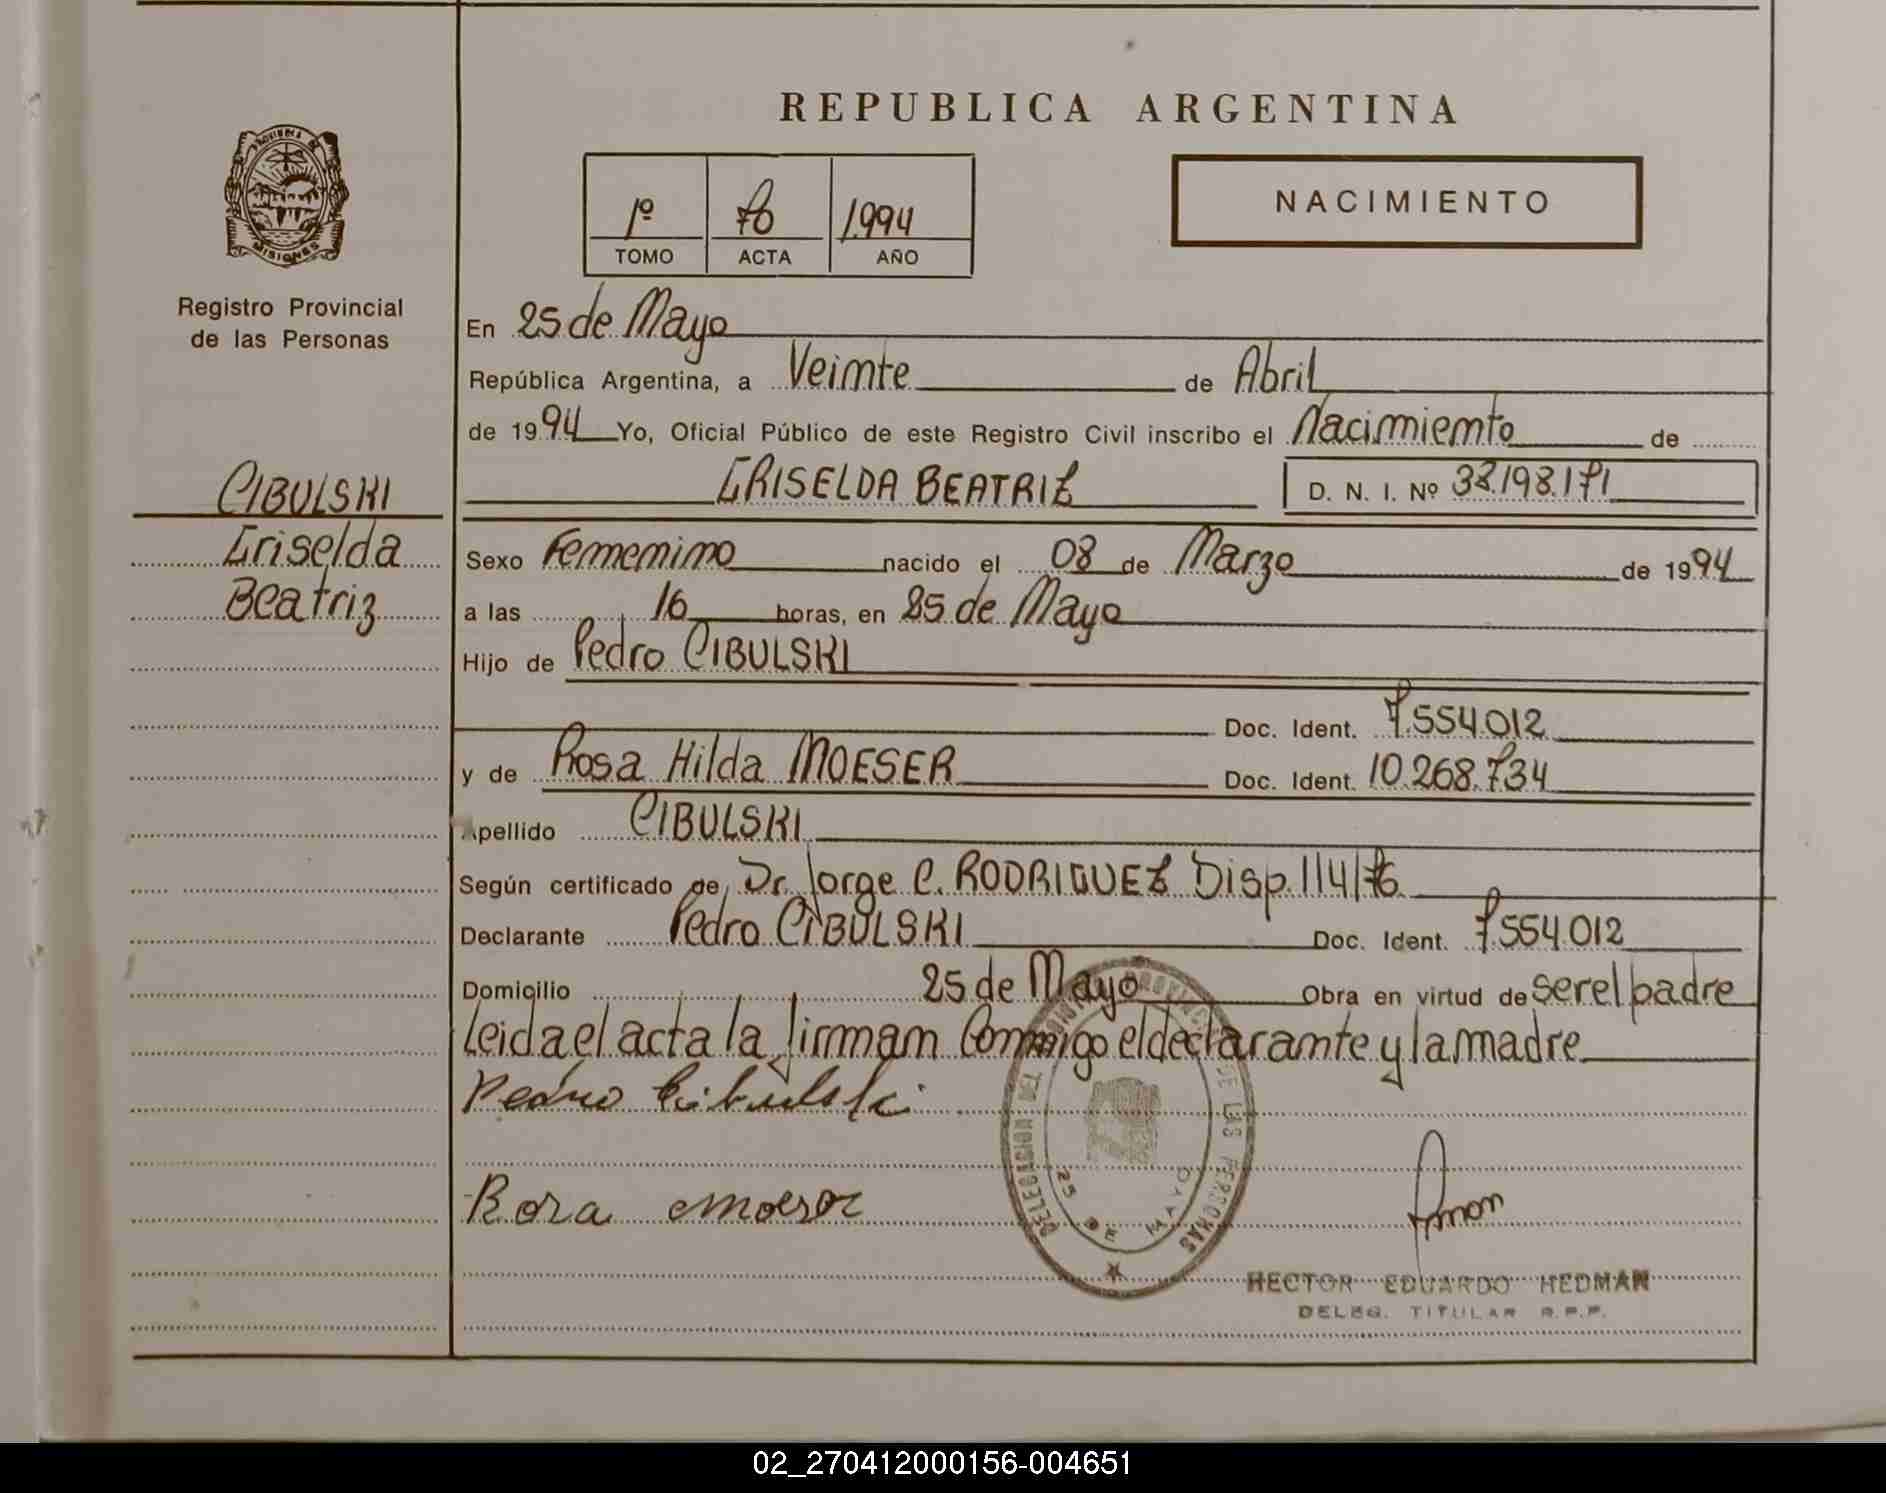 REPUBLICA ARGENTINA
PROVINCIA DE MISIONES
Registro Provincial
de las Personas
1º 70 1.994
TOMO ACTA AÑO
NACIMIENTO
En 25 de Mayo
República Argentina, a Veinte de Abril
de 1994 Yo, Oficial Público de este Registro Civil inscribo el Nacimiento de
GRISELDA BEATRIZ D. N. I. Nº 38.198.171
CIBULSKI
Griselda
Beatriz
Sexo Femenino nacido el 08 de Marzo de 1994
a las 16 horas, en 25 de Mayo
Hijo de Pedro CIBULSKI
Doc. Ident. 7.554.012
y de Rosa Hilda MOESER Doc. Ident. 10.268.734
Apellido CIBULSKI
Según certificado de Dr. Jorge C. RODRIGUEZ Disp. 114/76
Declarante Pedro CIBULSKI Doc. Ident. 7.554.012
Domicilio 25 de Mayo Obra en virtud de ser el padre
Leida el acta la firman Conmigo el declarante y la madre
Pedro Cibulski
Rosa Moeser
DELEGACION DEL REGISTRO PROVINCIAL DE LAS PERSONAS
25 DE MAYO
HECTOR EDUARDO HEDMAN
DELEG. TITULAR R.P.P.
02_270412000156-004651